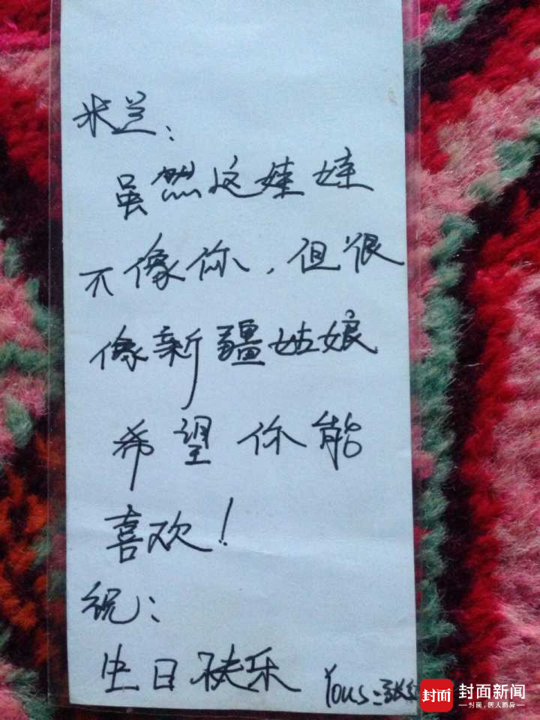 米兰：
虽然这娃娃
不像你，但很
像新疆姑娘
希望你能
喜欢！
祝：
生日快乐
Yous：
封面
封面新闻